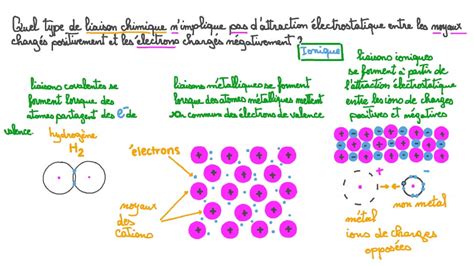 Quel type de liaison chimique n'implique pas d'attraction électrostatique entre les noyaux
chargés positivement et les électrons chargés négativement ?
Ionique
liaisons covalentes se
forment lorsque des
atomes partagent des e⁻ de
valence
hydrogène
H₂
liaisons métalliques se forment
lorsque des atomes métalliques mettent
en commun des électrons de valence
électrons
noyaux
des
cations
liaisons ioniques
se forment à partir de
l'attraction électrostatique
entre les ions de charges
positives et négatives
+
-
métal
non métal
ions de charges
opposées